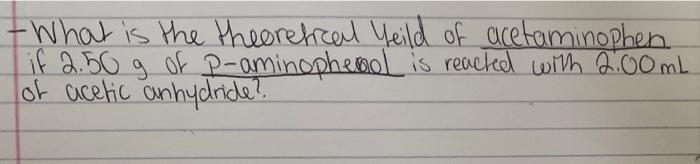 - What is the theoretical Yeild of acetaminophen
if 2.50 g of p-aminophenol is reacted with 2.00 mL
of acetic anhydride?